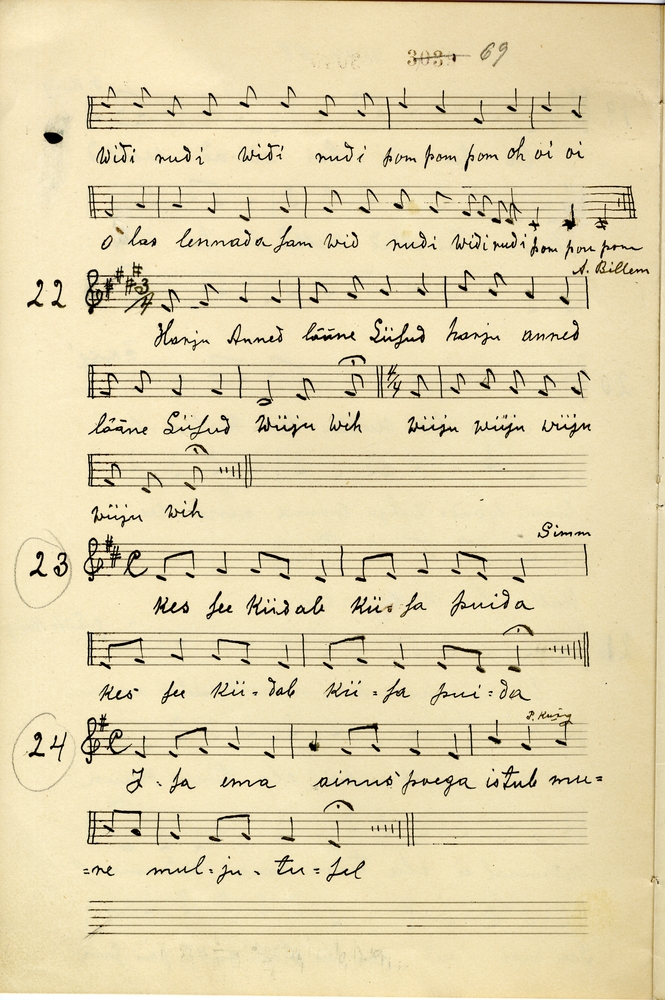 3039 69
widi rudi widi rudi pom pom pom oh oi oi
o las lennada sam wid rudi widi rudi pom pom pom
A. Billem
22 3/4
Harju Anned lääne Siisud harju anned
4/4
lääne Siisud wiiju wih wiiju wiiju wiiju
wiiju wih
Simm
23 C
Kes see Kiidab Kiissa puida
Kes see kii-dab kii-sa pui-da
24 C
I-sa ema ainus poega istub mu=
=ne mul-ju-tu-sel